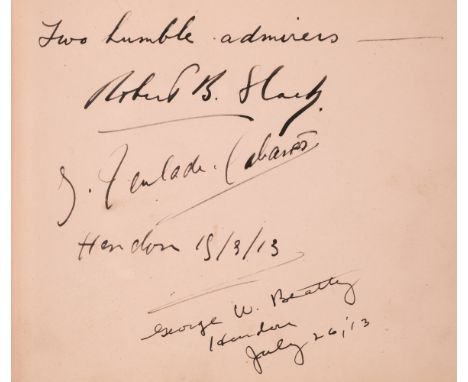 Two humble admirers
Robert B. Slack.
Hendon 15/3/13
George W. Beatty
Hendon
July 26, '13